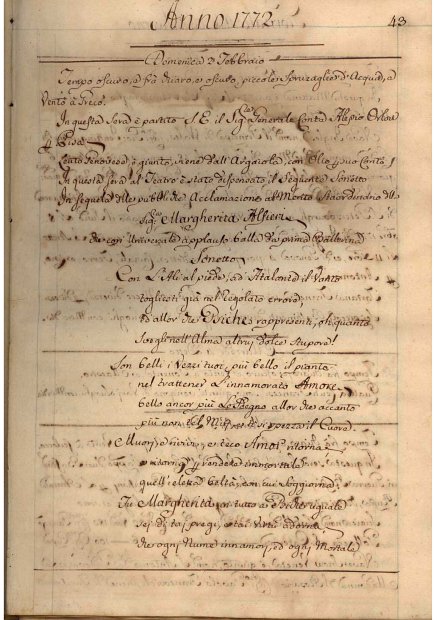 Anno 1772
43
Domenica 2 Febbraio
Tempo oscuro, e frà chiaro, e oscuro, piccole d'Acqua, e
Vento a Greco.
In questa Sera è partito S. E. il Sig.e Generale Conte Alesio Orlow
p Pisa
venuto dall' con Olio p suo Conto
In questa sera al Teatro è stato dispensato il seguente Sonetto
In seguela delle pubbliche Acclamazioni al Merito Straordinario della
Sig.ra Margherita Alfieri
che con Universale applauso balla da prima Ballerina
Sonetto
Con l'Ali al piede, ad Atalanta il Vanto
togliesti già nel regolato errore,
ed allor che Psiche rappresenti, oh quanto
svegli nell'Alme altrui dolce stupore!
Son belli i Vezzi tuoi, più bello il pianto
nel trattener l'innamorato Amore
bello ancor più lo sdegno allor che accanto
più non ti si spezza il Cuore.
Muori e ecco Amor ritorna
e intorno p renderla immortale
quell'eletta beltà, con cui soggiorna,
Tu Margherita in tutto a Psiche uguale
sei di tai pregi, e tai Virtù adorna
che ogni Nume innamori, ed ogni Mortale